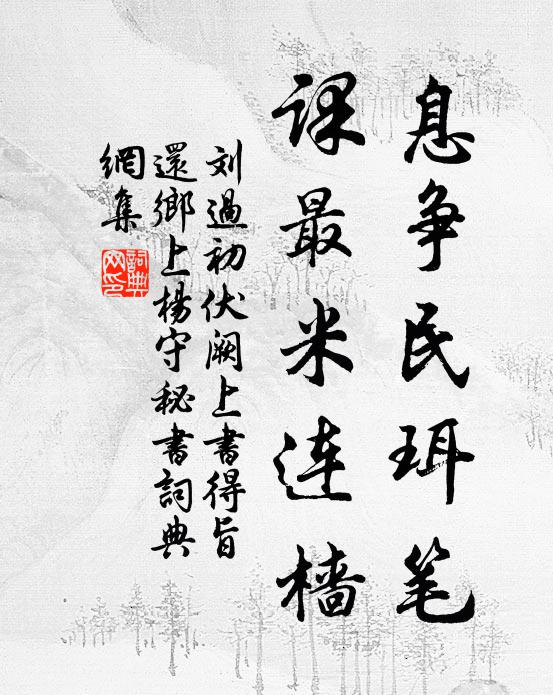 息争民珥笔
课最米连樯
刘過初伏阙上書得旨
還鄉上楊守秘書詞典
網集
詞典網印